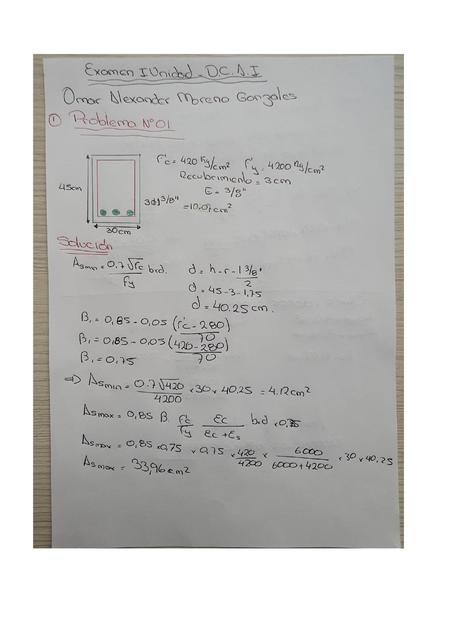 Examen I Unidad - D.C.A.I
Omar Alexander Moreno Gonzales
① Problema N°01
f'c = 420 Kg/cm² f'y = 4200 Kg/cm²
Recubrimiento = 3cm
E = 3/8"
45cm
3φ1 3/8"
= 10.07cm²
30cm
Solución
Asmin = 0.7√f'c/fy b×d.
d = h - r - 1 3/8"/2
d = 45-3-1.75
d = 40.25 cm.
β₁ = 0,85 - 0,05 (f'c - 280)/70
β₁ = 0,85 - 0.05 (420 - 280)/70
β₁ = 0,75
⇒ Asmin = 0.7√420/4200 × 30 × 40,25 = 4.12cm²
Asmax = 0,85 β₁ f'c/fy εc/εc+εs b×d × 0,75
Asmax = 0,85 × 0.75 × 0,75 × 420/4200 × 6000/6000+4200 × 30 × 40,25
Asmax = 33,96 cm²